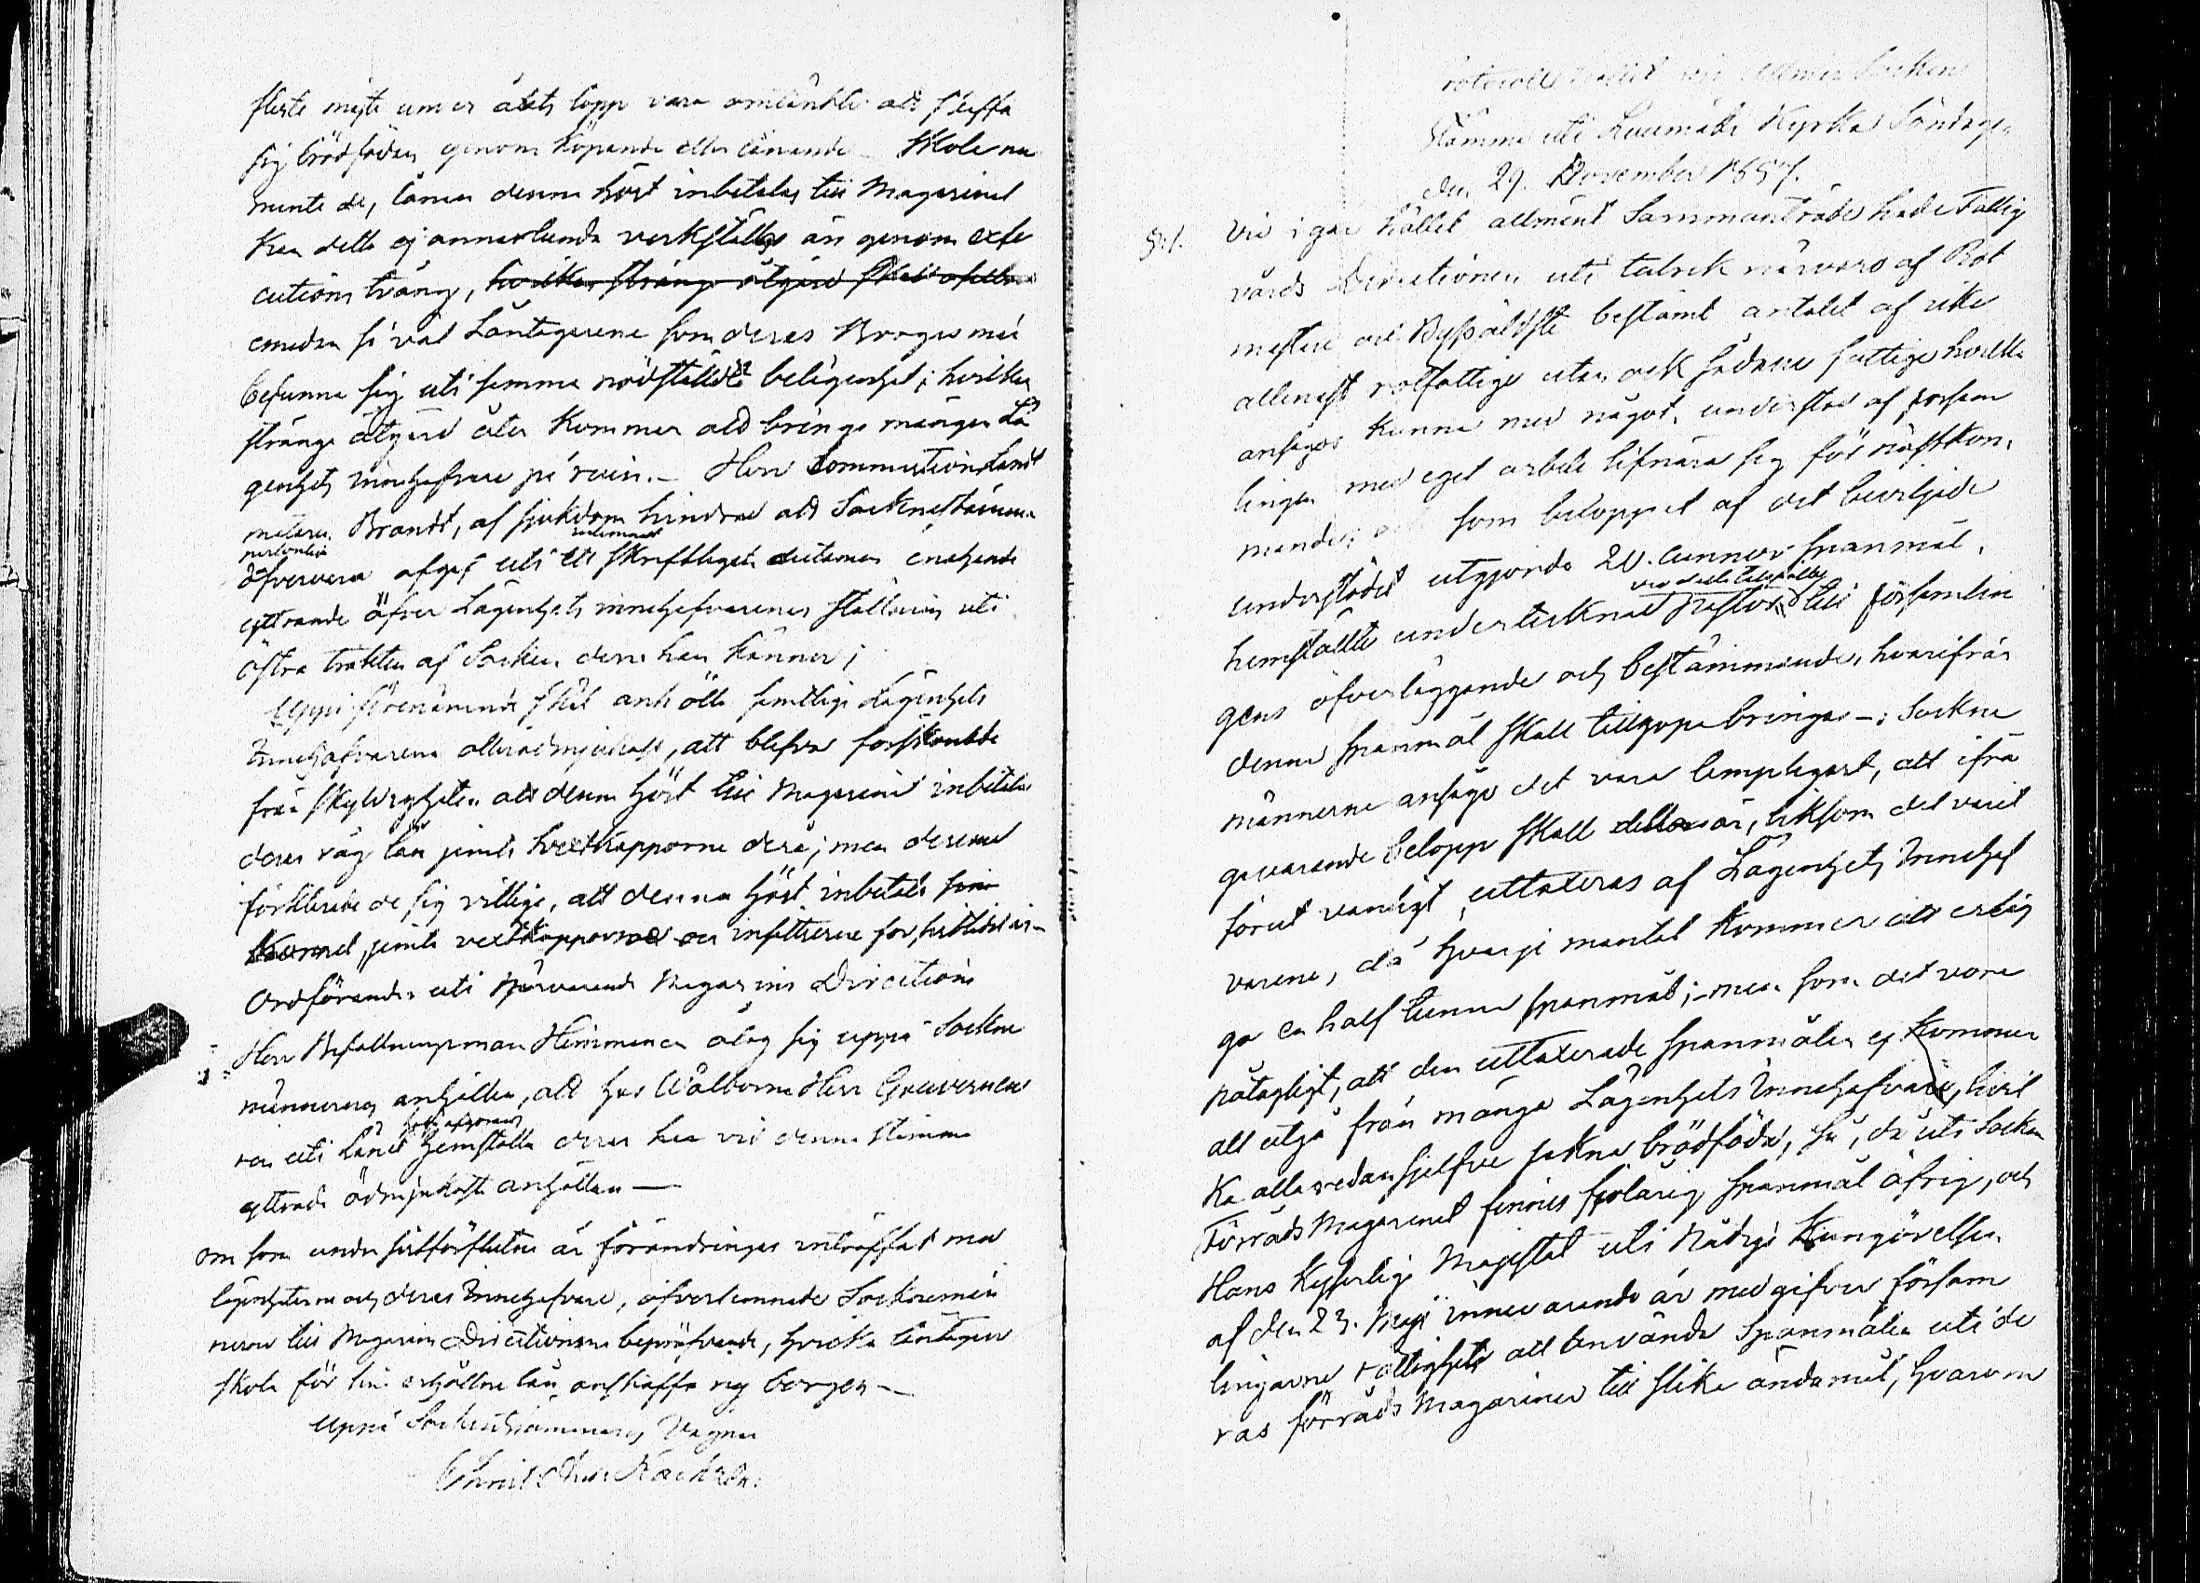 fleste måste under årets lopp vara omtänkte att skaffa
sig brödfödan genom köpande eller lånande. Skole nu
mente de, lånen denna höst inbetalas till Magazinet
kan detta ej annorlunda verkställas än genom exse
cutions tvång, hvilken stränga åtgärd
emedan så väl Låntagarena som deras Borgesmän
befunne sig uti samma nödställda belägenhet; hvilken
stränga åtgärd åter kommer att bringa mången Lä
genhets innehafvare på ruin. Herr Commissionslandt
mätaren Brandt, af sjukdom hindrad att Sockenstämman
personligen
öfvervara afgaf uti ett skriftligen enahanda
yttrande öfver Lägenhets innehafvarenes ställning uti
östra trakten af Socken den han känner;
Uppå förenämnda skäl anhölle samtlige Lägenhets
Innehafvarena allerödmjukast, att blifva förskonade
från skyldigheten att denna höst till Magazinet inbetala
deras råg lån jemte vextkapporne derå; men deremot
förklarade de sig villige, att denna höst inbetala
Kornet, jemte vextkapporne
Ordföranden uti närvarande Magazins Direction
Herr Befallningsman Himmanen ålag sig uppå Sockne
männernes anhållan, att hos Wälborne Herr Gouverneu
ren uti Länet hemställa deras här vid denna stämma
yttrade ödmjukaste anhållan —
Om som under sistförflutne år förändringar inträffat med
lägenheterna och deras Innehafvare, öfverlemnade Sockenmän
nerne till Magazins Directionens bepröfvande, hvilka låntagare
skola för sin erhållne lån anskaffa ny borgen —
Uppå Sockenstämmans vägnar

Protocoll hållet vid Allmän Sockne
Stämma uti Luumäki Kyrka Söndagen
den 29. November 1857.
§:1. Vid i går hållet allmänt Sammanträde hade Fattig
vårds Directionen uti talrik närvaro af Rot
mästare och Byåldste bestämt antalet af icke
allenast rotfattige utan ock sådane fattige hvilka
ansågos kunna med något understöd af försam
lingen med eget arbete lifnära sig för nästkom
mande; och som beloppet af det beviljade
understödet utgjorde 20. tunnor spanmål,
hemställte undertecknad Pastor till församlin
gens öfverläggande och bestämmande, hvarifrån
denna spanmål skall tillhopa bringas —; Sockne
männerne ansågo det vara lämpligast, att ifrå
gavarande belopp skall detta år, liksom det varit
förut vanligt, uttaxeras af Lägenhets Innehaf
varene, då hvarje mantal kommer att erläg
ga en half tunna spanmål; men som det vore
påtagligt, att den uttaxerade spanmålen ej kommer
att utgå från många Lägenhets Innehafvare, hvil
ka alla redan sjelfve sakna brödföda, så, då uti Socken
Förråds Magazinet finnes fjolårig spanmål öfrig, och
Hans Kejserliga Majestät uti Nådiga Kungörelsen
af den 23. Maji innevarande år medgifvit försam
lingarne rättighet att använda Spanmålen uti de
ras förråds Magaziner till slika ändamål, hvarom